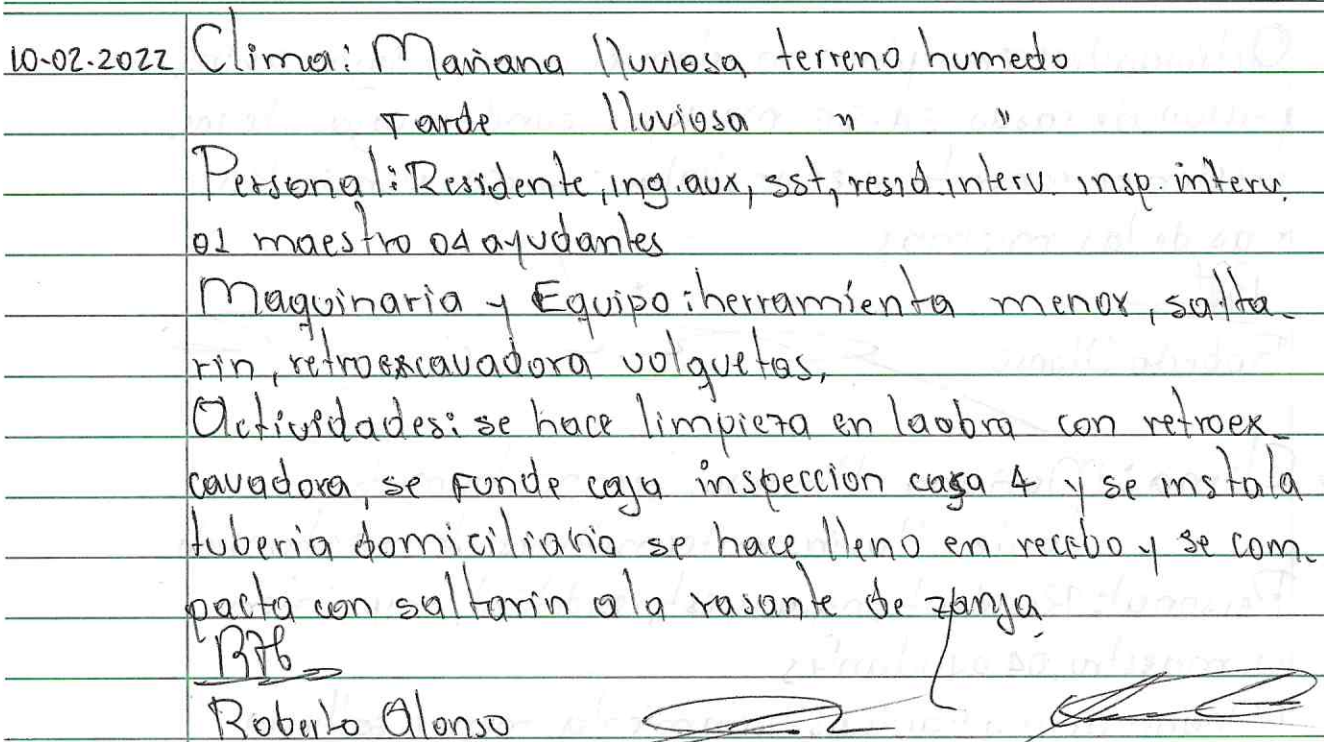 10-02-2022 Clima: Mañana lluviosa terreno humedo
Tarde lluviosa " "
Personal: Residente, ing. aux, sst, resid. interv. insp. interv.
01 maestro 04 ayudantes
Maquinaria y Equipo: herramienta menor, salta-
rin, retroexcavadora volquetas,
Actividades: se hace limpieza en la obra con retroex-
cavadora, se funde caja inspeccion casa 4 y se instala
tuberia domiciliaria se hace lleno en recebo y se com-
pacta con saltarin a la rasante de zanja
Roberto Alonso